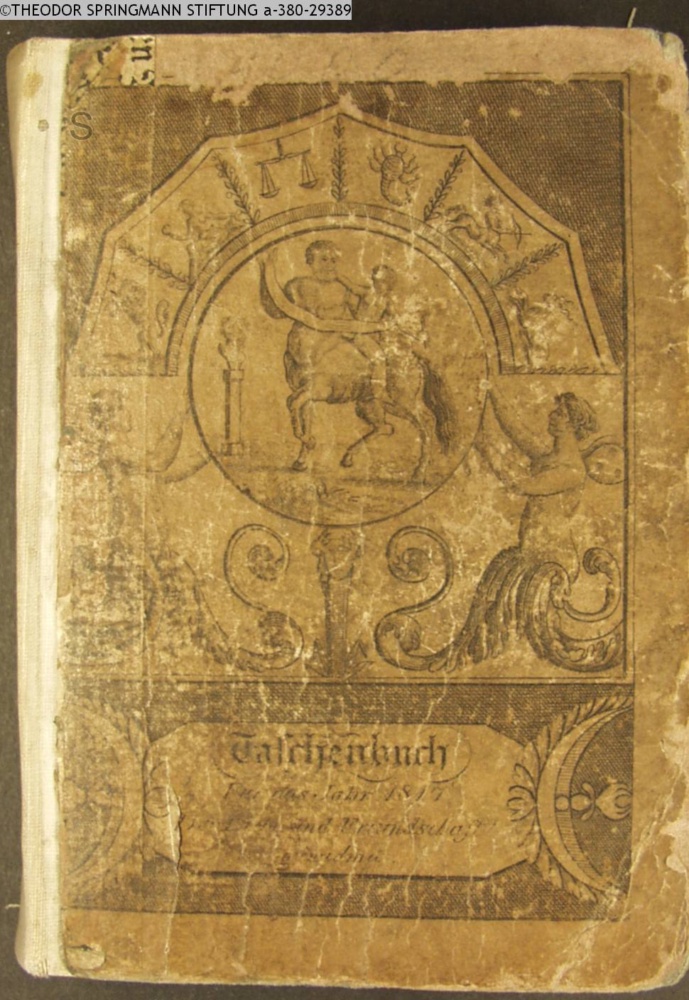 ©THEODOR SPRINGMANN STIFTUNG a-380-29389
S
Taschenbuch
Für das Jahr 1817
und Freundschaft